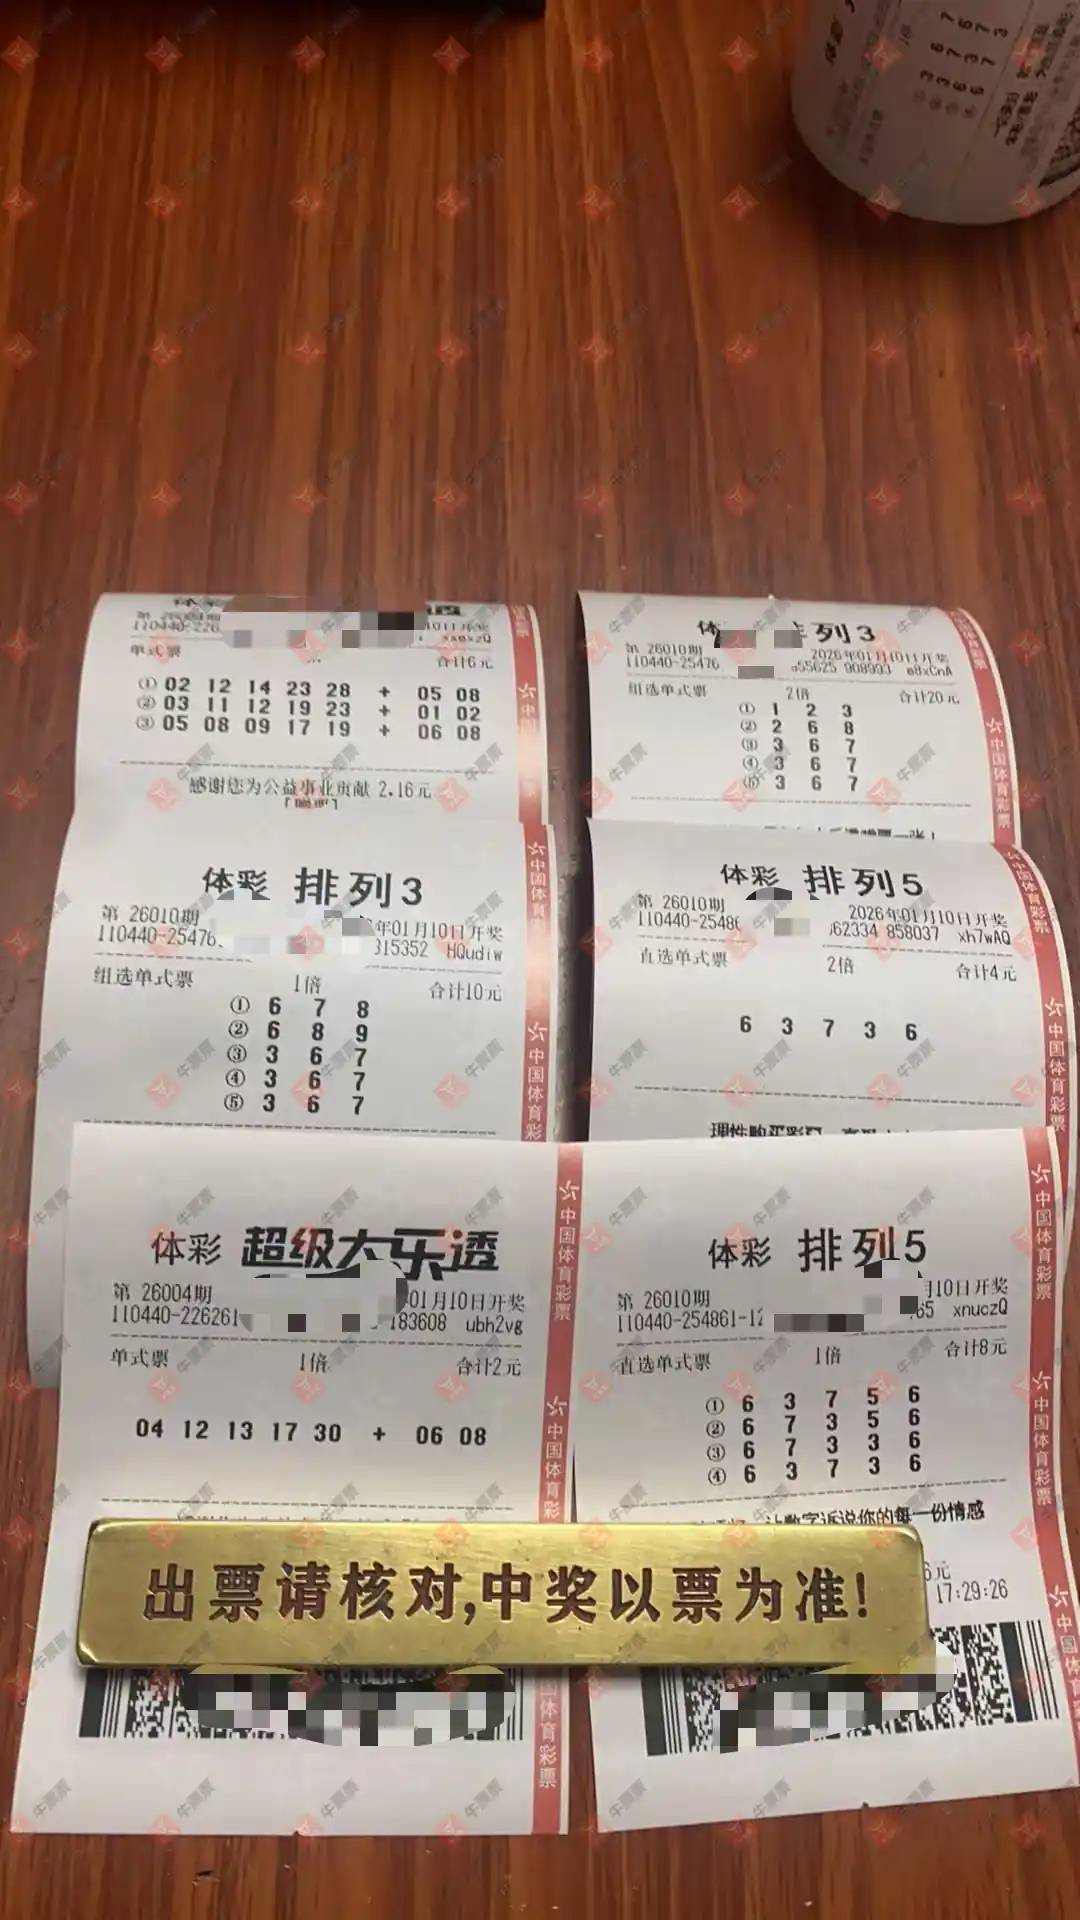 体彩
110440-226
xx0xzQ
单式票
合计6元
① 02 12 14 23 28 + 05 08
② 03 11 12 19 23 + 01 02
③ 05 08 09 17 19 + 06 08
感谢您为公益事业贡献 2.16元
体 排列3
第 26010期 2026年01月10日开奖
110440-25476 55625 908993 e8xCnA
组选单式票 2倍 合计20元
① 1 2 3
② 2 6 8
③ 3 6 7
④ 3 6 7
⑤ 3 6 7
体彩 排列3
第 26010期 年01月10日开奖
110440-25476 315352 HQudiw
组选单式票 1倍 合计10元
① 6 7 8
② 6 8 9
③ 3 6 7
④ 3 6 7
⑤ 3 6 7
体彩 排列5
第 26010期 2026年01月10日开奖
110440-2548 62334 858037 xh7wAQ
直选单式票 2倍 合计4元
6 3 7 3 6
理性购买彩
体彩 超级大乐透
第 26004期 01月10日开奖
110440-226261 183608 ubh2vg
单式票 1倍 合计2元
04 12 13 17 30 + 06 08
体彩 排列5
第 26010期 月10日开奖
110440-254861-12 65 xnuczQ
直选单式票 1倍 合计8元
① 6 3 7 5 6
② 6 7 3 5 6
③ 6 7 3 3 6
④ 6 3 7 3 6
让数字诉说你的每一份情感
6元
17:29:26
出票请核对,中奖以票为准!
中国体育彩票
中国体育彩票
中国体育彩票
中国体育彩票
牛票票